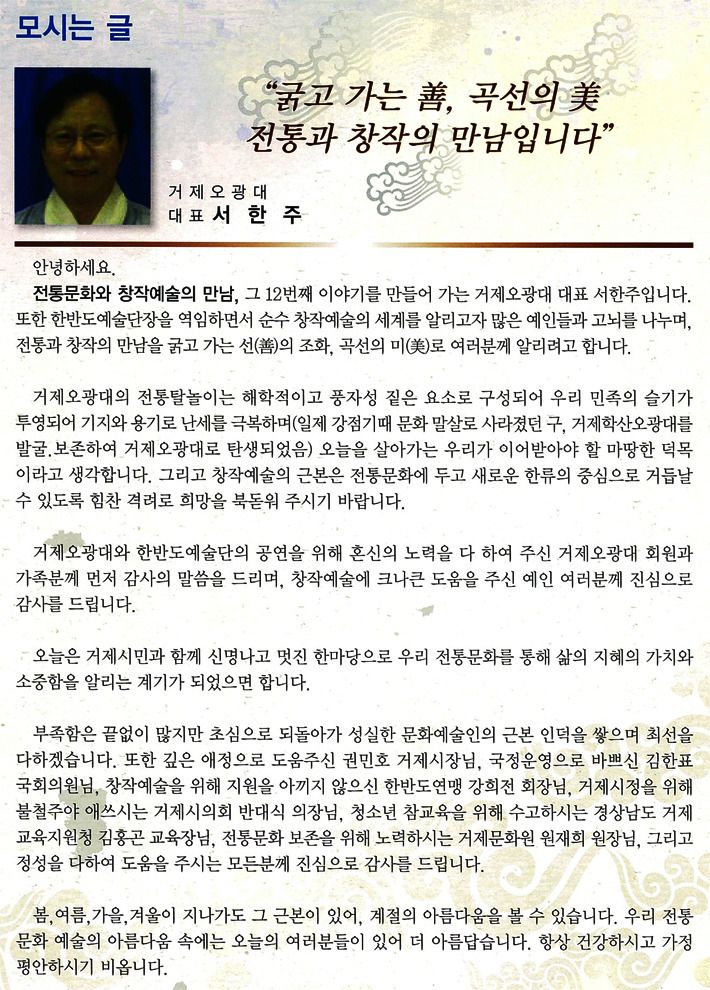 모시는 글
“굵고 가는 善, 곡선의 美
전통과 창작의 만남입니다”
거제오광대
대표 서한주
안녕하세요.
전통문화와 창작예술의 만남, 그 12번째 이야기를 만들어 가는 거제오광대 대표 서한주입니다.
또한 한반도예술단장을 역임하면서 순수 창작예술의 세계를 알리고자 많은 예인들과 고뇌를 나누며,
전통과 창작의 만남을 굵고 가는 선(善)의 조화, 곡선의 미(美)로 여러분께 알리려고 합니다.
거제오광대의 전통탈놀이는 해학적이고 풍자성 짙은 요소로 구성되어 우리 민족의 슬기가
투영되어 기지와 용기로 난세를 극복하며(일제 강점기때 문화 말살로 사라졌던 구, 거제학산오광대를
발굴.보존하여 거제오광대로 탄생되었음) 오늘을 살아가는 우리가 이어받아야 할 마땅한 덕목
이라고 생각합니다. 그리고 창작예술의 근본은 전통문화에 두고 새로운 한류의 중심으로 거듭날
수 있도록 힘찬 격려로 희망을 북돋워 주시기 바랍니다.
거제오광대와 한반도예술단의 공연을 위해 혼신의 노력을 다 하여 주신 거제오광대 회원과
가족분께 먼저 감사의 말씀을 드리며, 창작예술에 크나큰 도움을 주신 예인 여러분께 진심으로
감사를 드립니다.
오늘은 거제시민과 함께 신명나고 멋진 한마당으로 우리 전통문화를 통해 삶의 지혜의 가치와
소중함을 알리는 계기가 되었으면 합니다.
부족함은 끝없이 많지만 초심으로 되돌아가 성실한 문화예술인의 근본 인덕을 쌓으며 최선을
다하겠습니다. 또한 깊은 애정으로 도움주신 권민호 거제시장님, 국정운영으로 바쁘신 김한표
국회의원님, 창작예술을 위해 지원을 아끼지 않으신 한반도연맹 강희전 회장님, 거제시정을 위해
불철주야 애쓰시는 거제시의회 반대식 의장님, 청소년 참교육을 위해 수고하시는 경상남도 거제
교육지원청 김홍곤 교육장님, 전통문화 보존을 위해 노력하시는 거제문화원 원재희 원장님, 그리고
정성을 다하여 도움을 주시는 모든분께 진심으로 감사를 드립니다.
봄,여름,가을,겨울이 지나가도 그 근본이 있어, 계절의 아름다움을 볼 수 있습니다. 우리 전통
문화 예술의 아름다움 속에는 오늘의 여러분들이 있어 더 아름답습니다. 항상 건강하시고 가정
평안하시기 비옵니다.